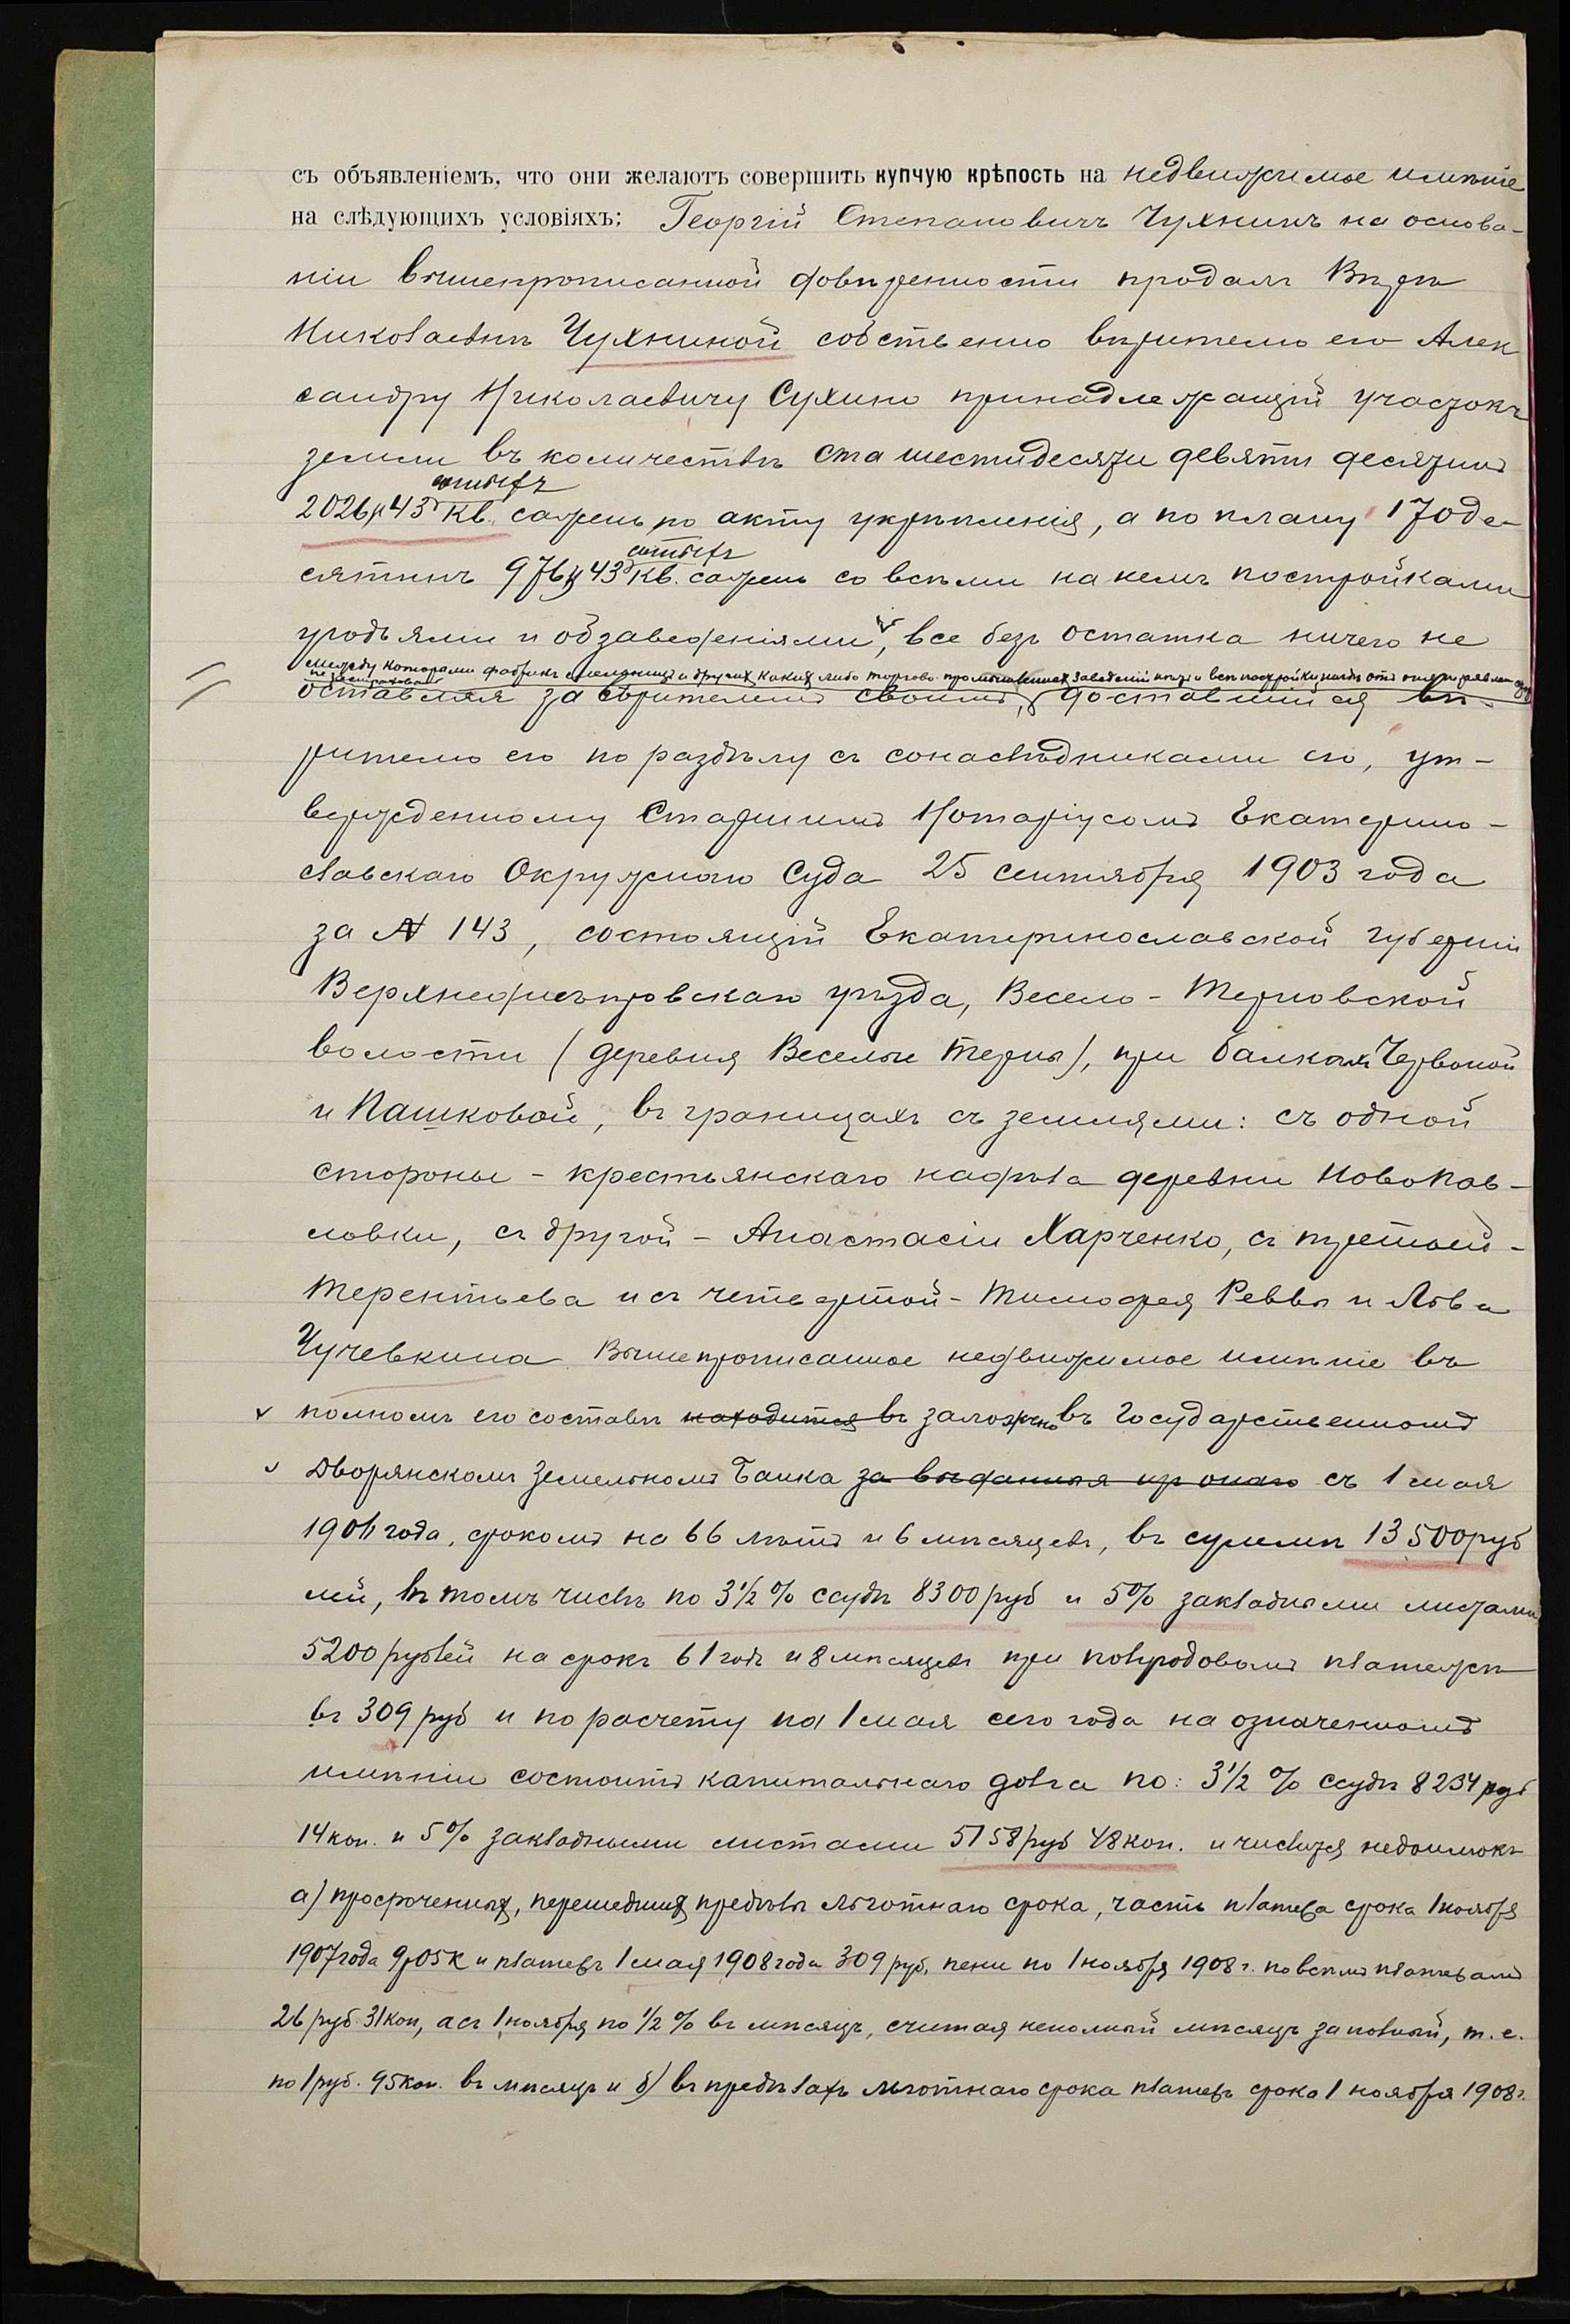 съ объявленіемъ, что они желаютъ совершить купчую крѣпость на недвижимое имѣніе
на слѣдующихъ условіяхъ: Георгій Степановичъ Чухнинъ на основа-
ніи вышепрописанной довѣренности продалъ Вѣрѣ
Николаевнѣ Чухниной собственно вѣрителю его Алек
сандру Николаевичу Сухину принадлежащій участокъ
земли въ количествѣ ста шестидесяти девяти десятинъ
сотыхъ
2026,43 кв. сажень по акту укрѣпленія, а по плану 170 де-
сотыхъ
сятинъ 976,43 кв. сажень со всѣми на немъ постройками
угодьями и обзаведеніями, все безъ остатка ничего не
между которыми фабрикъ мельницъ и другихъ какихъ либо торгово промышленныхъ заведеній нѣтъ и всѣ постройки нигдѣ отъ огня
не застрахованы
оставляя за вѣрителемъ своимъ, доставшійся вѣ-
рителю его по раздѣлу съ сонаслѣдниками его, ут-
вержденному Старшимъ Нотаріусомъ Екатерино-
славскаго Окружнаго Суда 25 сентября 1903 года
за № 143, состоящій Екатеринославской губерніи
Верхнеднѣпровскаго уѣзда, Весело-Терновской
волости (деревня Веселые Терны), при балкахъ Червоной
и Пашковой, въ границахъ съ землями: съ одной
стороны - крестьянскаго надѣла деревни Новопав-
ловки, съ другой - Анастасіи Харченко, съ третьей -
Терентьева и съ четвертой - Тимофея Реввы и Льва
Чучевкина Вышепрописанное недвижимое имѣніе въ
полномъ его составѣ находится въ заложено въ Государственномъ
Дворянскомъ Земельномъ Банкѣ за выданныя изъ онаго съ 1 мая
года, срокомъ на 66 лѣтъ и 6 мѣсяцевъ, въ суммѣ 13500 руб
лей, въ томъ числѣ по 3½ % ссудѣ 8300 руб и 5% закладными листами
5200 рублей на срокъ 61 годъ и 8 мѣсяцевъ при полугодовомъ платежѣ
въ 309 руб и по расчету на 1 мая сего года на означенномъ
имѣніи состоитъ капитальнаго долга по: 3½ % ссудѣ 8234 руб
14 коп. и 5% закладными листами 5158 руб 48 коп. и числится недоимокъ
а) просроченныхъ, перешедшихъ предѣлы льготнаго срока, часть платежа срока 1 ноября
1907 года 9 р 05 к и платежъ 1 мая 1908 года 309 руб, пени по 1 ноября 1908 г. по всѣмъ платежамъ
26 руб 31 коп, а съ 1 ноября по ½ % въ мѣсяцъ, считая неполный мѣсяцъ за полный, т. е.
по 1 руб. 95 коп. въ мѣсяцъ и б) въ предѣлахъ льготнаго срока платежъ срока 1 ноября 1908 г.